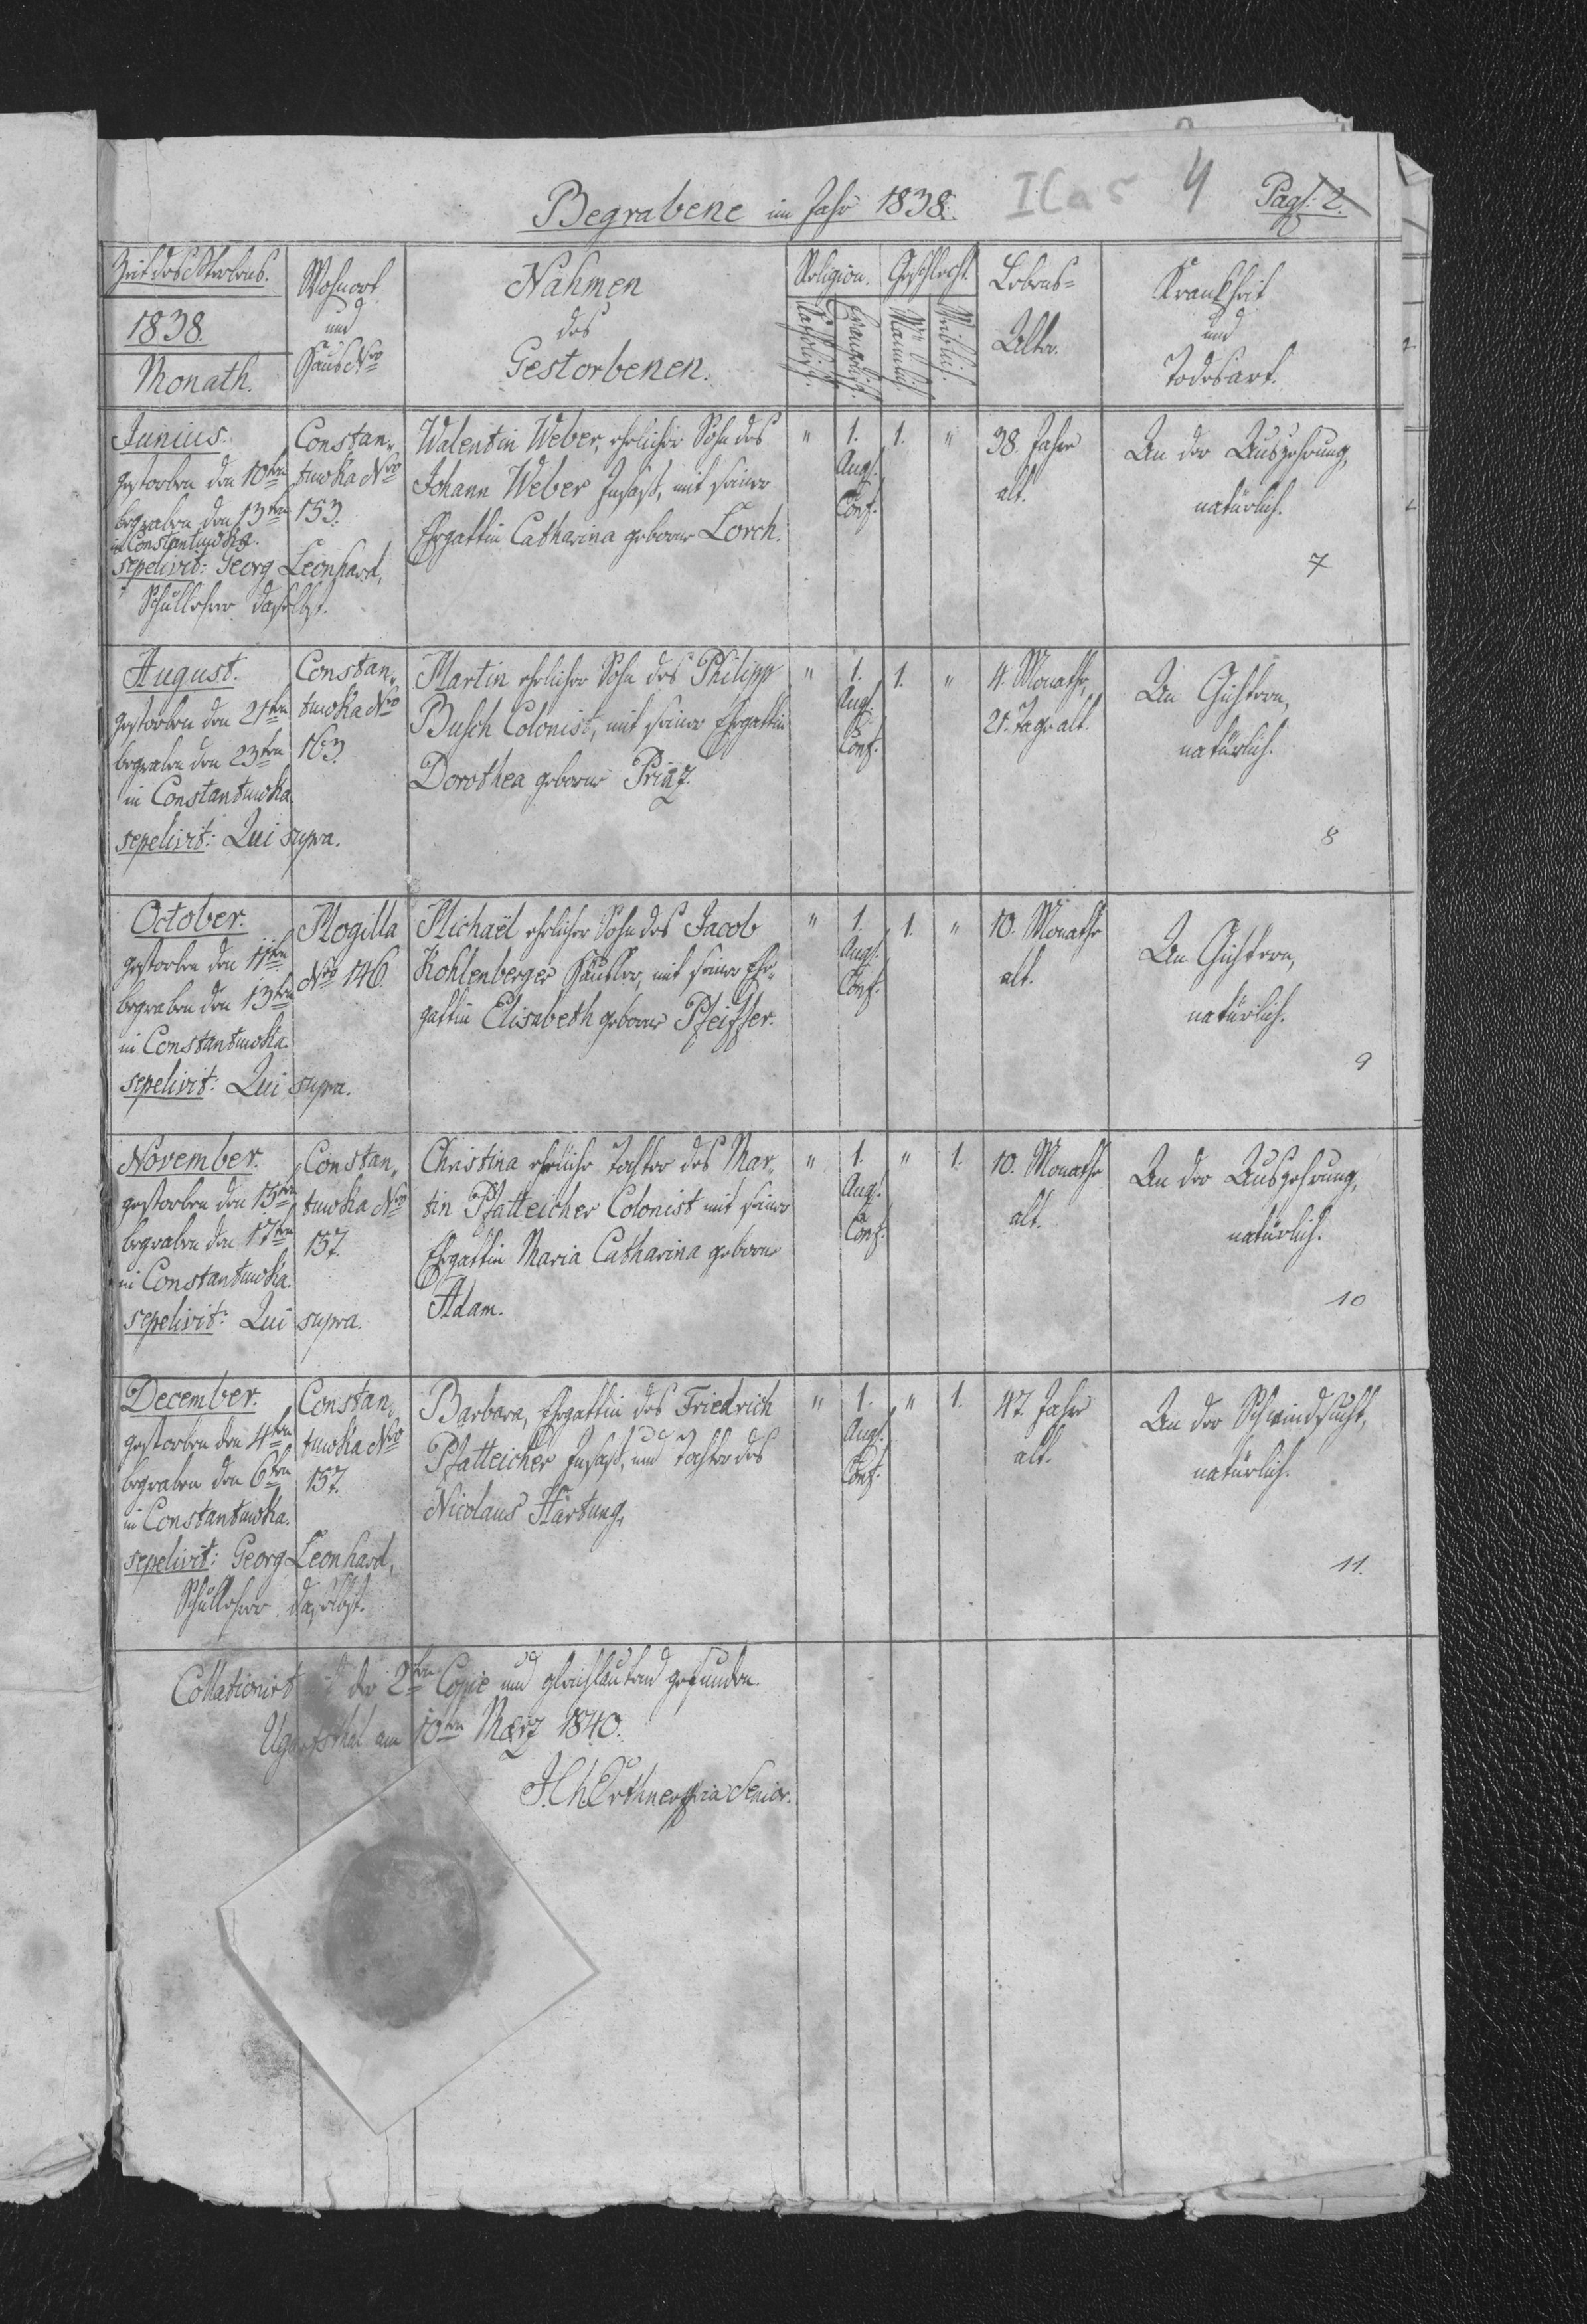 Begrabene im Jahr 1838.
ICa5
4
Pag: 2.
Zeit des Sterbens.
1838.
Monath.
Wohnort
und
Haus Nro
Nahmen
des
Gestorbenen.
Religion.
Katholisch.
Evangelisch.
Geschlecht.
Männlich.
Weiblich.
Lebens-
Alter.
Krankheit
und
Todesart.
Junius.
gestorben den 10ten
begraben den 13ten
in Constantuwka.
sepelivit: Georg Leonhard,
Schullehrer daselbst.
Constan-
tuwka Nro
153.
Walentin Weber, ehelicher Sohn des
Johann Weber Insaß, mit seiner
Ehegattin Catharina geborne Lorch.
" 1. 1. "
Augs.
Conf.
38. Jahre
alt.
An der Auszehrung,
natürlich.
7
August.
gestorben den 21ten
begraben den 23ten
in Constantuwka.
sepelivit: Qui supra.
Constan-
tuwka Nro
163.
Martin ehelicher Sohn des Philipp
Busch Colonist, mit seiner Ehegattin
Dorothea geborne Prinz.
" 1. 1. "
Augs.
Conf.
4. Monathe,
21. Tage alt.
An Gichtern,
natürlich.
8
October.
gestorben den 11ten
begraben den 13ten
in Constantuwka.
sepelivit: Qui supra.
Mogilla
Nro 146.
Michaël ehelicher Sohn des Jacob
Kohlenberger Häusler, mit seiner Ehe-
gattin Elisabeth geborne Pfeiffer.
" 1. 1. "
Augs.
Conf.
10. Monathe
alt.
An Gichtern,
natürlich.
9
November.
gestorben den 15ten
begraben den 17ten
in Constantuwka.
sepelivit: Qui supra.
Constan-
tuwka Nro
157.
Christina eheliche Tochter des Mar-
tin Pfatteicher Colonist mit seiner
Ehegattin Maria Catharina geborne
Adam.
" 1. " 1.
Augs.
Conf.
10. Monathe
alt.
An der Auszehrung,
natürlich.
10
December.
gestorben den 4ten
begraben den 6ten
in Constantuwka.
sepelivit: Georg Leonhard,
Schullehrer daselbst.
Constan-
tuwka Nro
157.
Barbara, Ehegattin des Friedrich
Pfatteicher Insaß, und Tochter des
Nicolaus Hartung,
" 1. " 1.
Augs.
Conf.
47. Jahre
alt.
An der Schwindsucht,
natürlich.
11.
Collationirt der 2ten Copie und gleichlautend gefunden.
Ugartsthal am 10ten März 1840.
Senior.